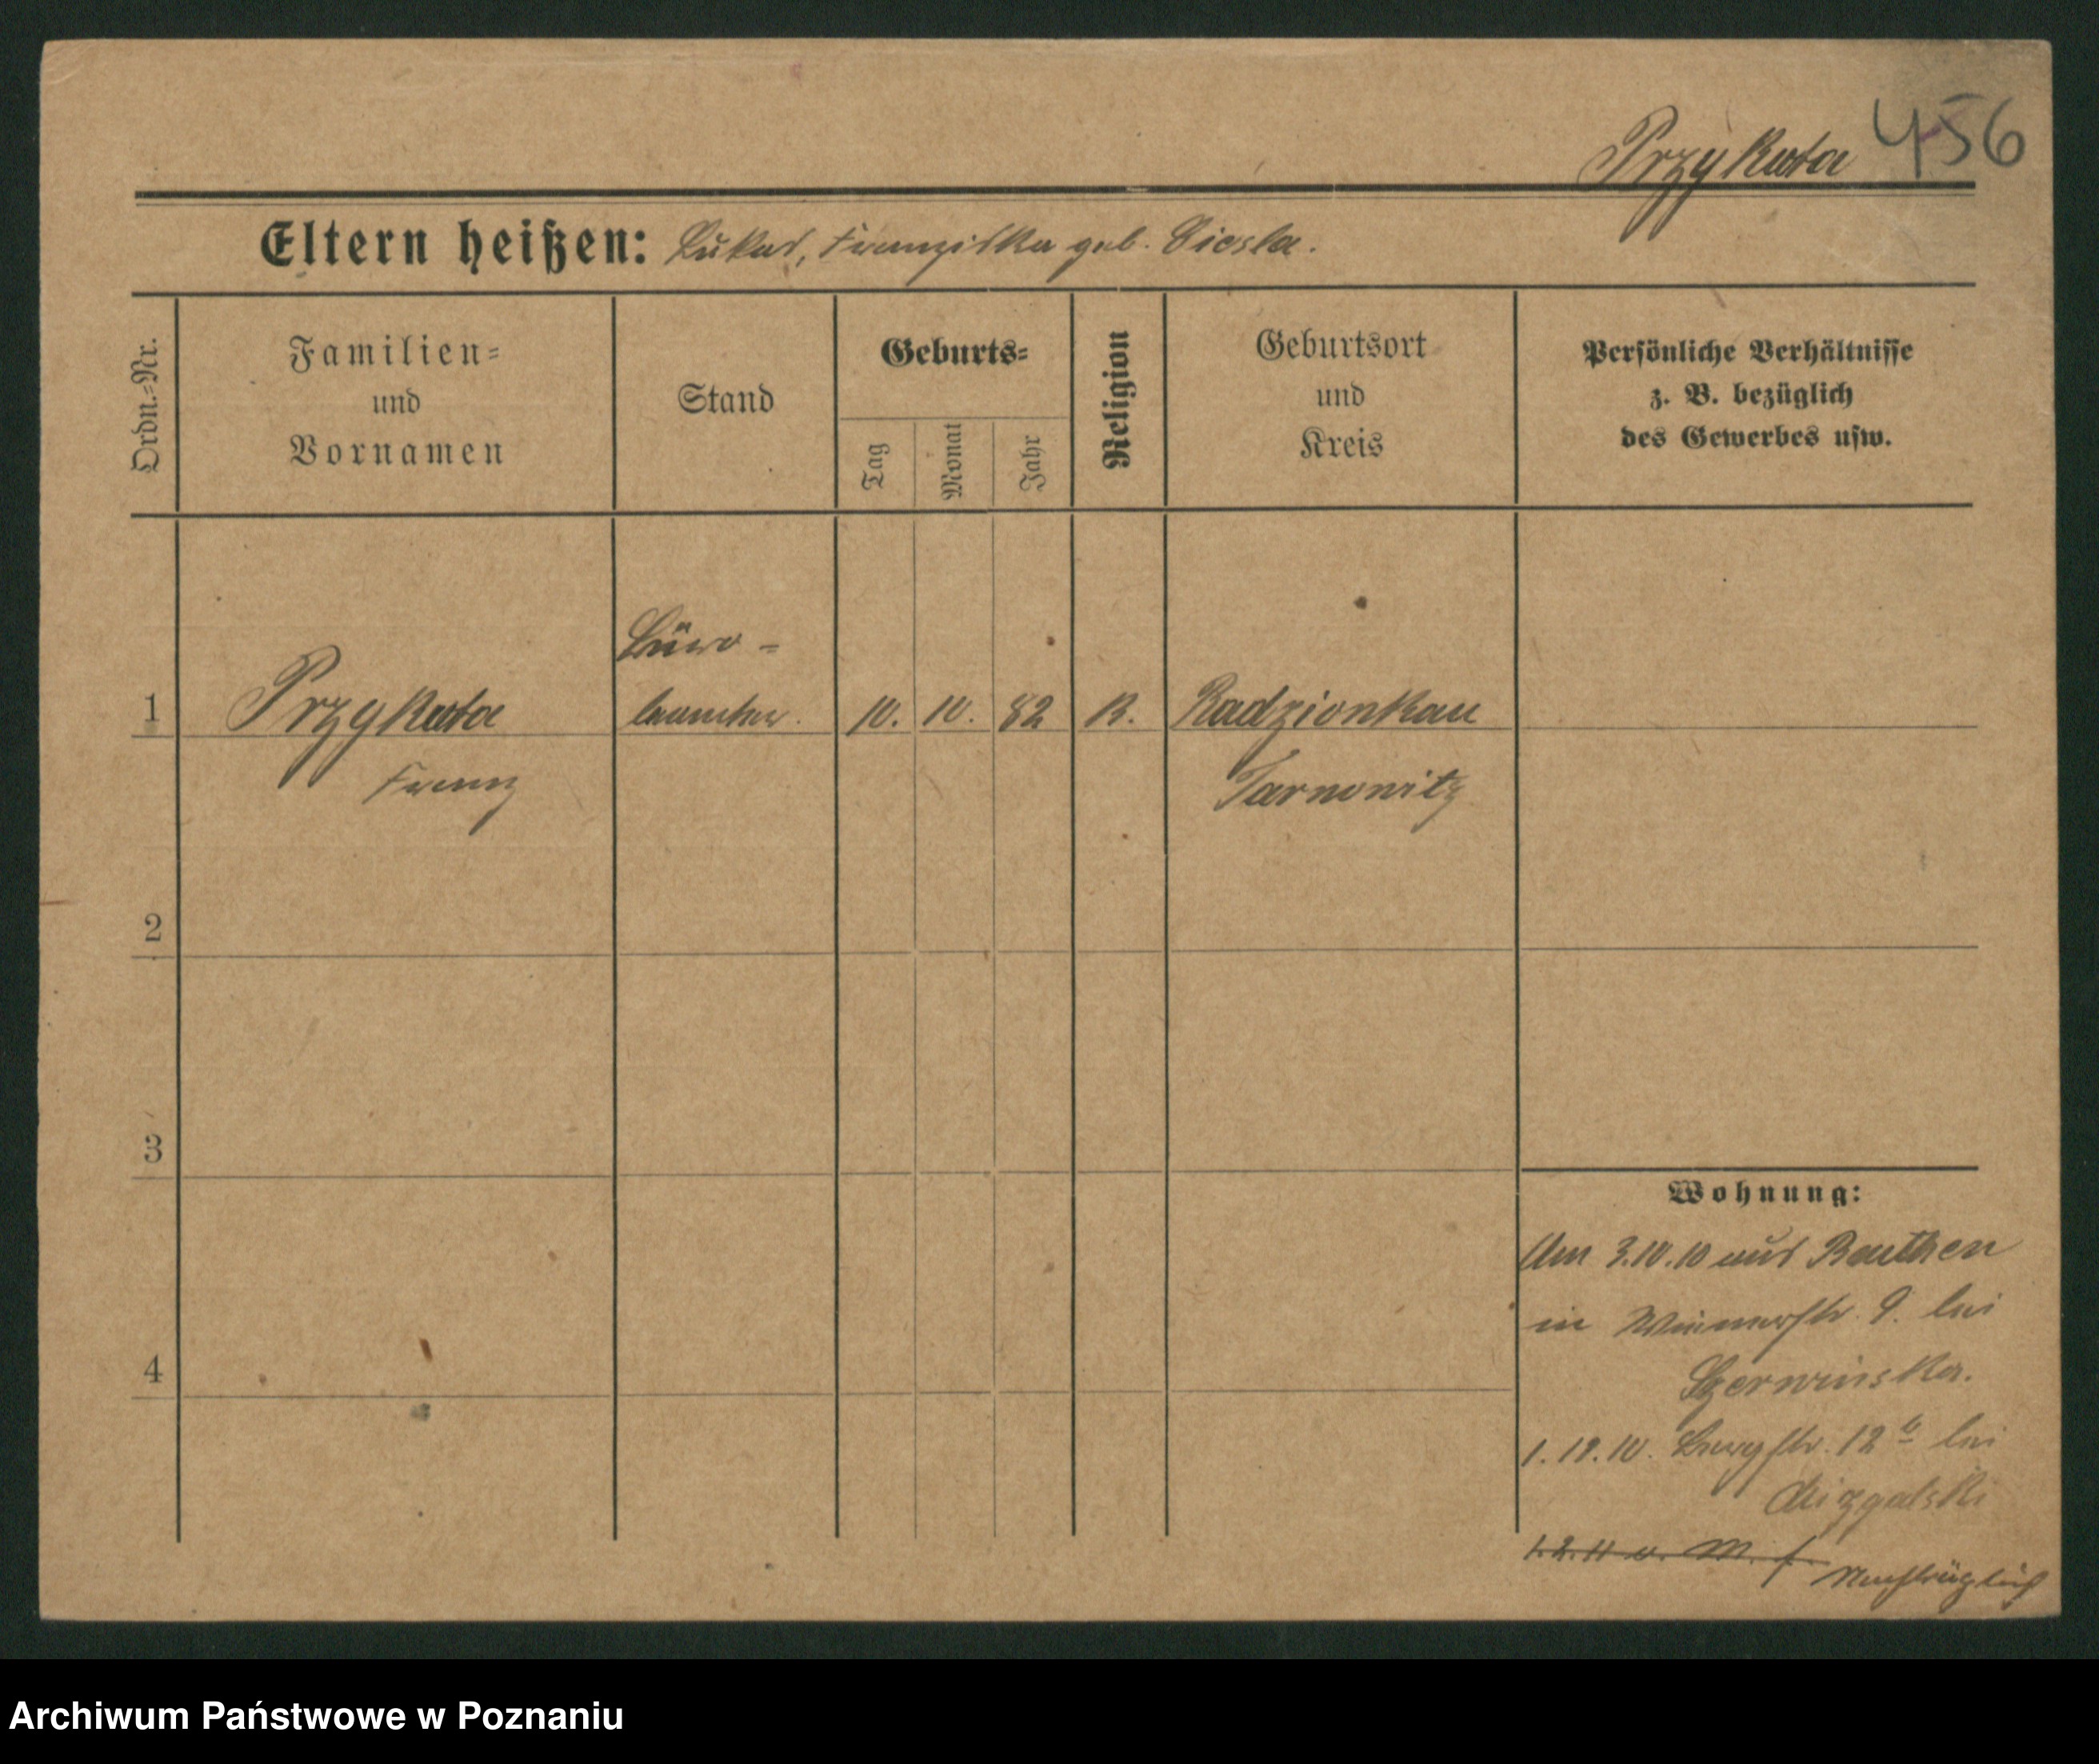 Przykuta 456
Eltern heißen: Lukas, Franziska geb. Ciesla.
Ordn.=Nr.
Familien=
und
Vornamen
Stand
Geburts=
Tag
Monat
Jahr
Religion
Geburtsort
und
Kreis
Persönliche Verhältnisse
z. B. bezüglich
des Gewerbes usw.
Büro-
1 Przykuta beamter. 10. 10. 82 K. Radzionkau
Franz Tarnowitz
2
3
4
Wohnung:
Am 3.10.10 aus Beuthen
in 9. bei
Szerwinska.
1. 12. 10. Bergstr. 12 b bei
Mizgalski
1.2.11 v. M. f.
Archiwum Państwowe w Poznaniu